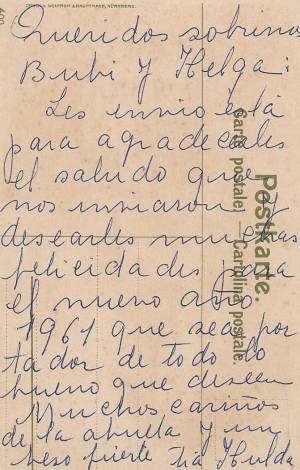 Queridos sobrinos
Bubi y Helga:
Les envio esta
para agradecerles
el saludo que
nos enviaron y
desearles muchas
felicidades para
el nuevo año
1961 que sea por
tador de todo lo
bueno que deseen
Muchos cariños
de la abuela y un
beso fuerte tia Hulda
Postkarte.
Carte postale — Cartolina postale.